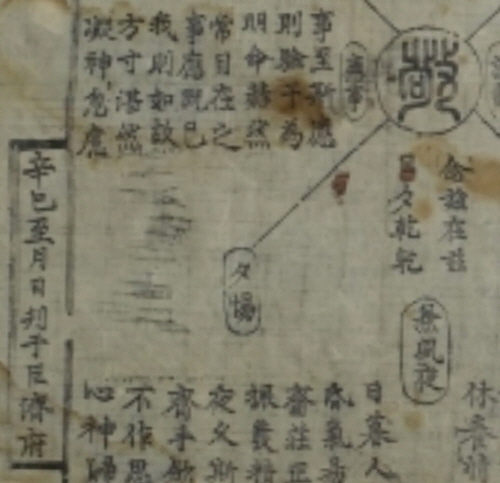 敬
應事
事至斯應
則驗于為
明命赫然
常目在之
事應既已
我則如故
方寸湛然
凝神息慮
念玆在玆
日夕乾乾
夕惕
兼夙夜
日暮人
昏氣易
齋莊正
振拔精
夜久斯
齊手斂
不作思
心神歸
辛巳至月日刊于巨濟府